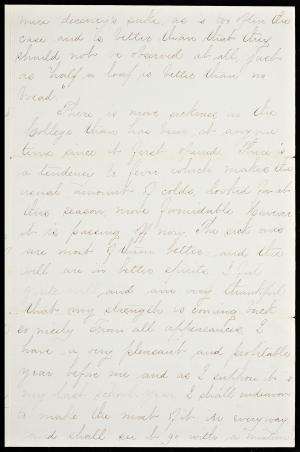 mere decency's sake, as is so often the
case and is better than that they
should not be observed at all, just
as "half a loaf is better than no
bread".
There is more sickness in the
College than has been at any one
time since it first opened. There is
a tendency to fever which makes the
usual amount of colds, looked for at
this season, more formidable. However
it is passing off now. The sick ones
are most of them better, and the
well are in better spirits. I feel
quite well and am very thankful
that my strength is coming back
so nicely. From all appearances I
have a very pleasant and profitable
year before me and as I suppose it is
my last school year I shall endeavor
to make the most of it in every way
and shall see it go with a